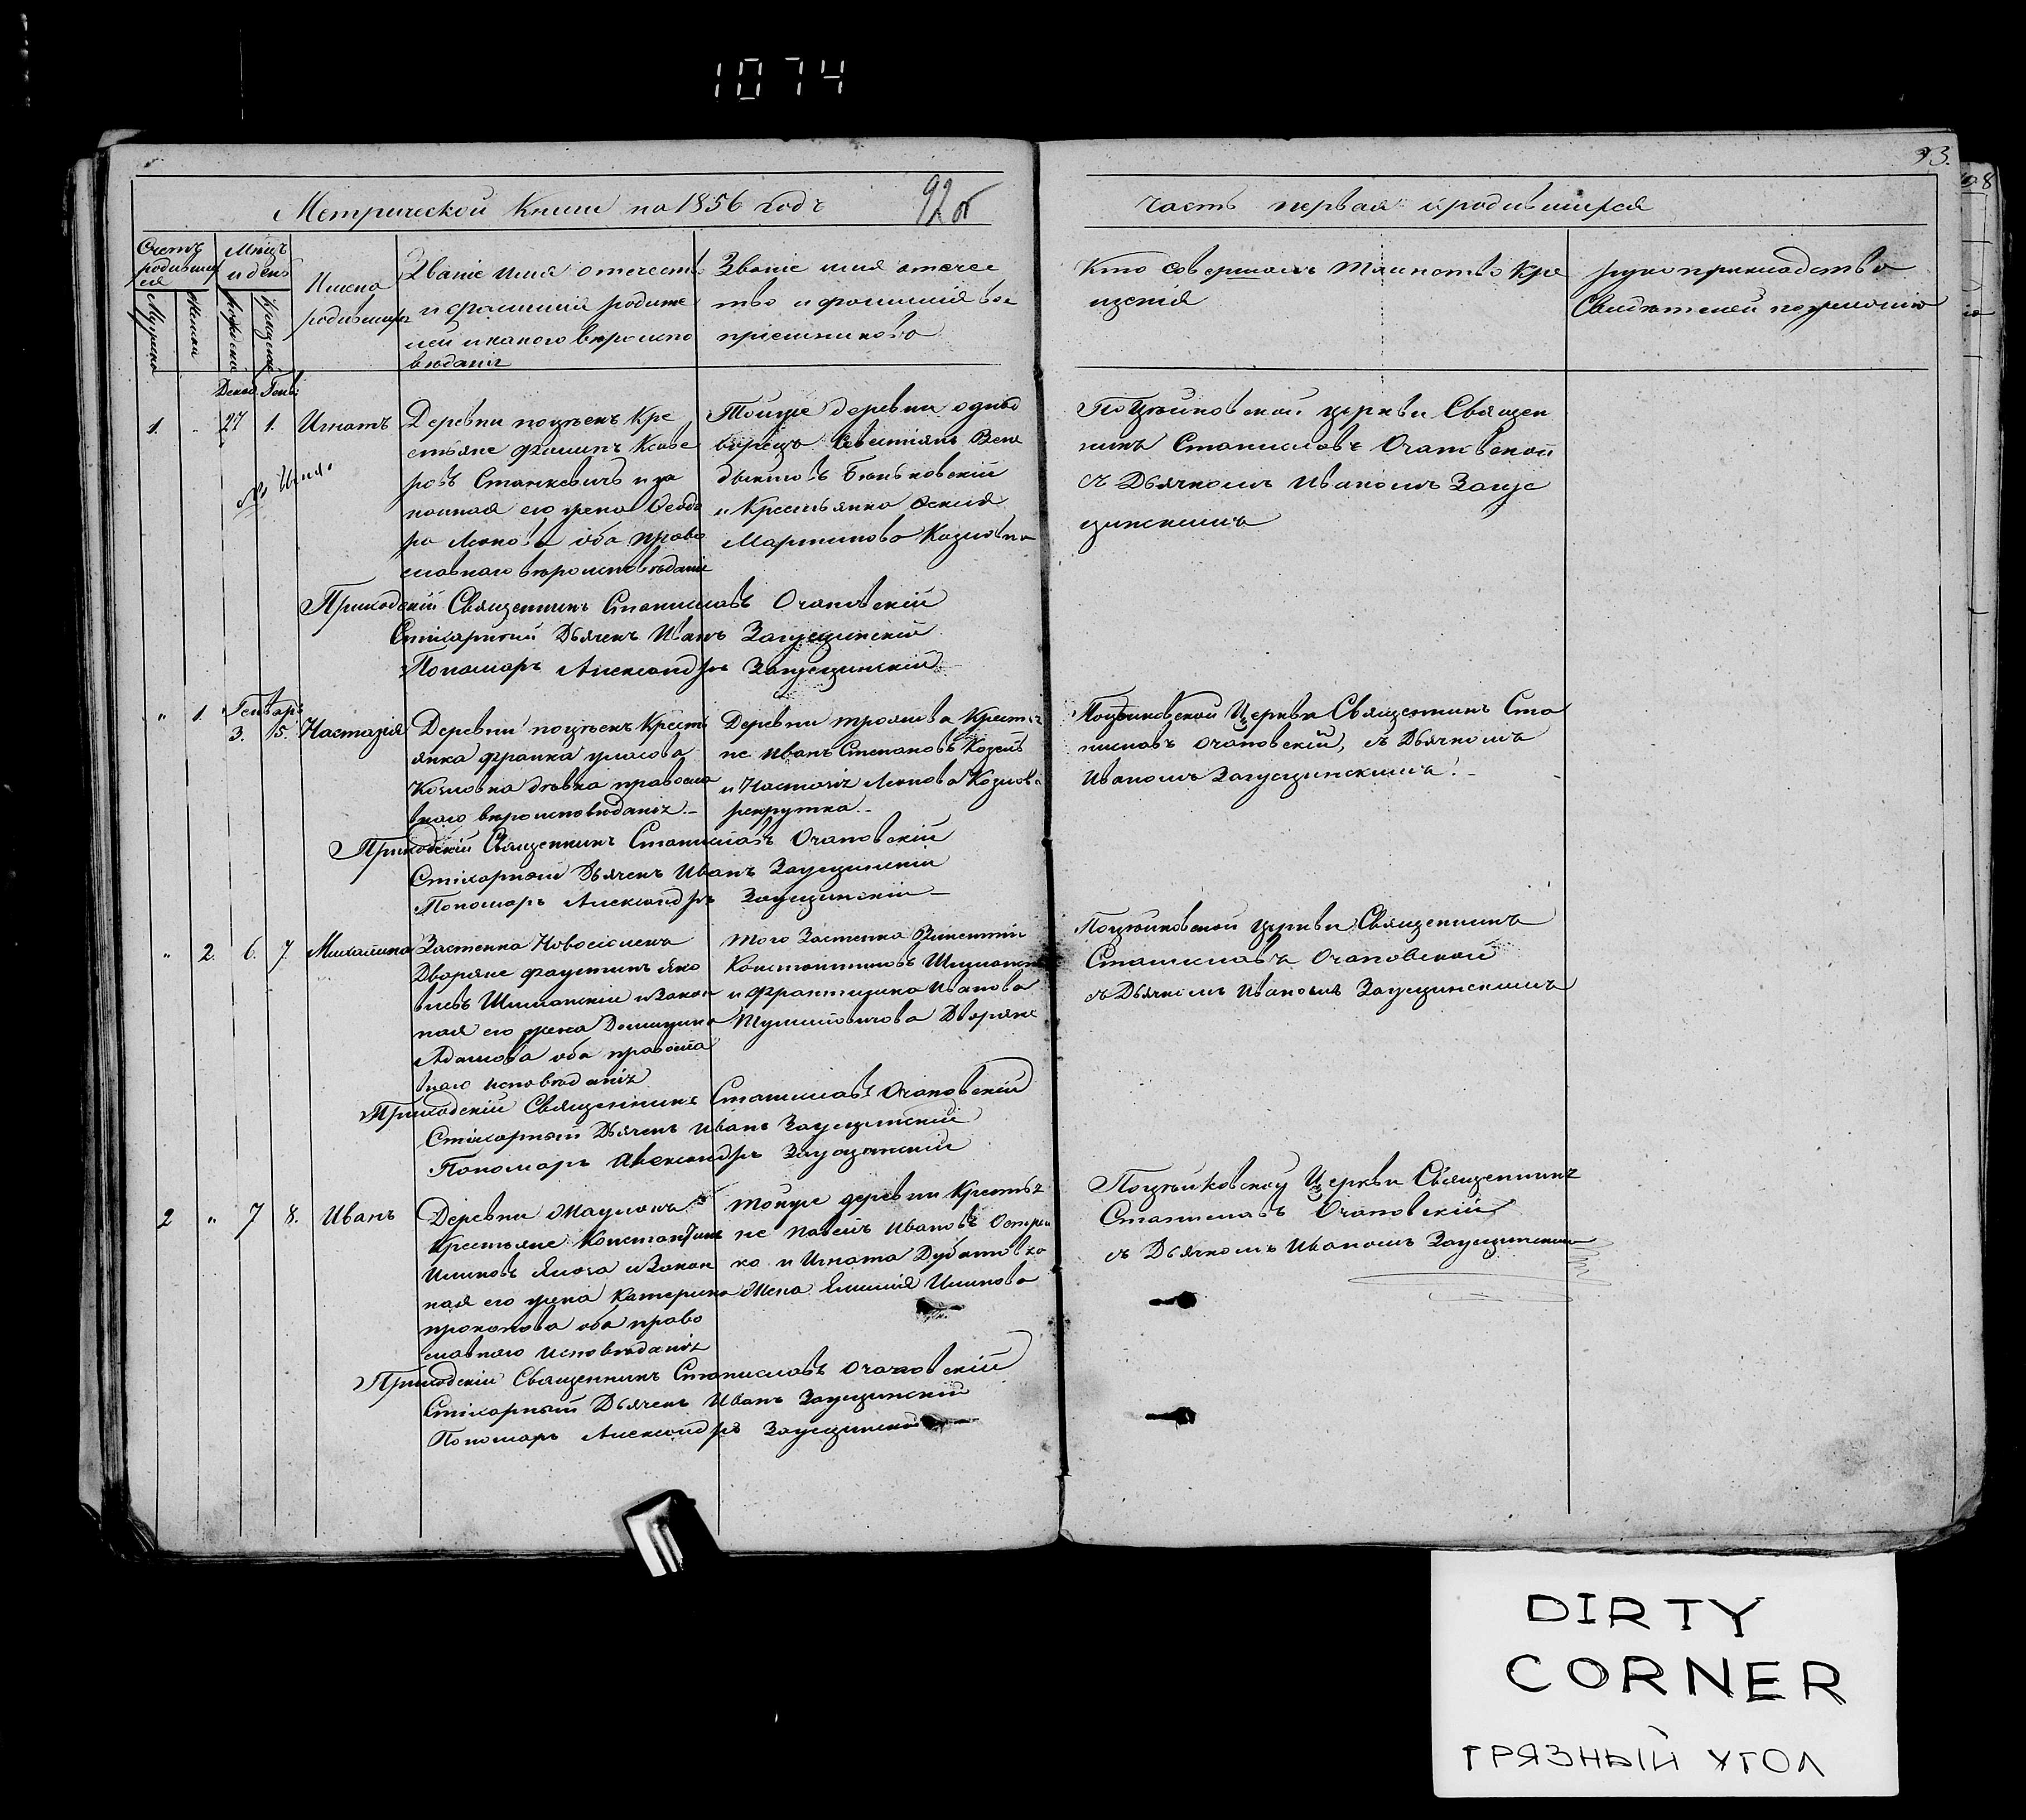 1074
93.
Метрической Книги на 1856 годъ
92об
часть первая о родившихся
Счетъ родившихся
Мѣсяцъ и день
Мужеска
Женска
рожденія
Крещенія
Имена родившихся
Званіе имя отечест
и фамилія родите
лей и какого вѣроиспо
вѣданія
Званіе имя отечес
тво и фамилія вос
пріемниковъ
Кто совершалъ таинство Кре
щенія
рукоприкладство
Свидѣтелей по желанію
Декаб. Генв.
1. - 27 1. Игнатъ
Деревни поцѣекъ Кре
стьяне Филипъ Ксаве
ровъ Станкевичъ и за
конная его жена Ѳеодо
ра Леонова оба право
славнаго вѣроисповѣданія
Тойже деревни однод
ворецъ Севестіянъ Вене
диктовъ Боньковскій
и Крестьянка
Мартинова Козловна
Поцѣйковской церкви Священ
никъ Станиславъ Очаповскій
съ Дьячкомъ Иваномъ Загус
щинскимъ
Приходскій Священникъ Станиславъ Очаповскій
Стихарный Дьячекъ Иванъ Загусщинскій
Пономарь Александръ Загусщинскій
" 1. Генварь 3. 5. Настазія
Деревни поцѣекъ Кресть
янка Франка
Козловна дѣвка правосла
внаго вѣроисповѣданія.-
Деревни Трояново Крестья
не Иванъ Степановъ Козелъ
и Настазія Леонова Козлов
рекрутка.-
Поцѣйковской Церкви Священникъ Ста
ниславъ Очаповскій, съ Дьячкомъ
Иваномъ Загусщинскимъ.-
Приходскій Священникъ Станиславъ Очаповскій
Стихарный Дьячекъ Иванъ Загусщинскій
Пономарь Александръ Загусщинскій-
" 2. 6. 7. Михалина
Застенка Новосіолекъ
Дворяне Фаустинъ Яко
влевъ Шиманскій и Закон
ная его жена Доминика
Адамова оба правосла
внаго исповѣданія
того Застенка Викентій
Константиновъ Шиманск
и Францишка Иванова
Дворяне
Поцѣйковской церкви Священникъ
Станиславъ Очаповскій
съ Дьячкомъ Иваномъ Загусщинскимъ
Приходскій Священникъ Станиславъ Очаповскій
Стихарный Дьячекъ Иванъ Загусщинскій
Пономарь Александръ Загусщинскій
2 " 7 8. Иванъ
Деревни
Крестьяне Константинъ
Ильинъ и Закон
ная его жена Катерина
Прокопова оба право
славнаго исповѣданія
тойже деревни Крестья
не Павелъ Ивановъ Остреи
ко и Игната Дубатовко
Жена Емилія Ильинова
Поцѣйковской Церкви Священникъ
Станиславъ Очаповскій
съ Дьячкомъ Иваномъ Загусщинскимъ
Приходскій Священникъ Станиславъ Очаповскій
Стихарный Дьячекъ Иванъ Загусщинскій
Пономарь Александръ Загусщинскій
DIRTY
CORNER
ГРЯЗНЫЙ УГОЛ